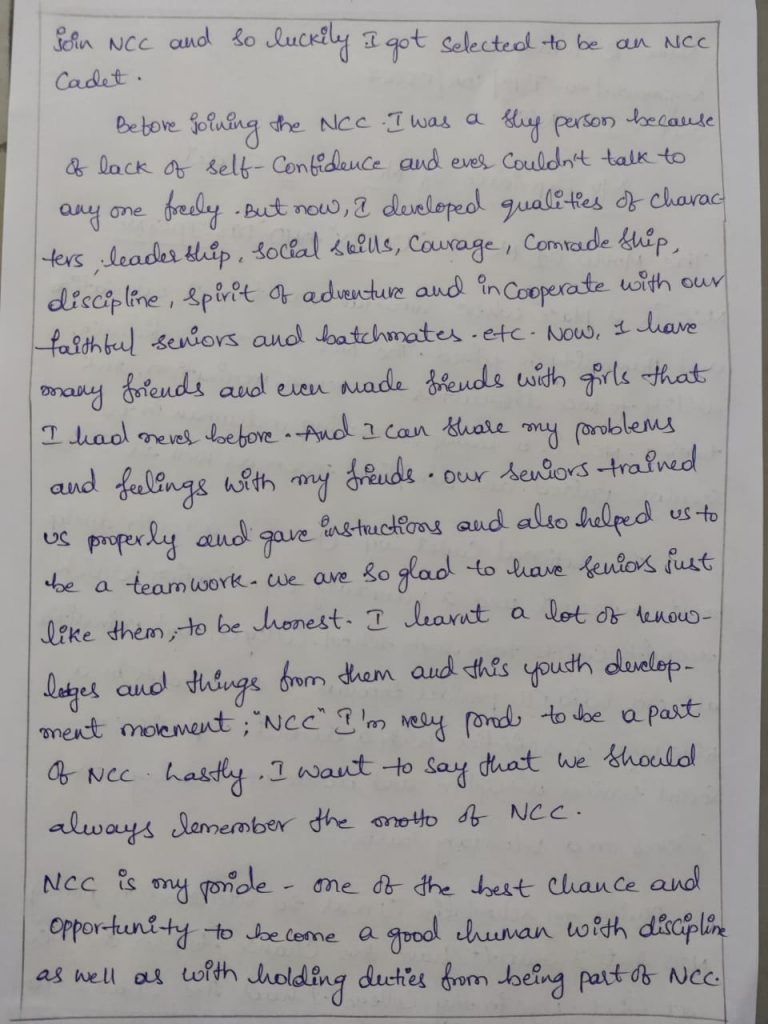 join NCC and so luckily I got selected to be an NCC
Cadet.
Before joining the NCC. I was a shy person because
of lack of self-Confidence and even Couldn't talk to
any one freely. But now, I developed qualities of charac-
ters, leadership, social skills, Courage, Comradeship,
discipline, spirit of adventure and inCooperate with our
faithful seniors and batchmates. etc. Now, I have
many friends and even made friends with girls that
I had never before. And I can share my problems
and feelings with my friends. our seniors trained
us properly and gave instructions and also helped us to
be a teamwork. we are so glad to have seniors just
like them, to be honest. I learnt a lot of know-
ledges and things from them and this youth develop-
ment movement; "NCC" I'm very prod to be a part
of NCC. Lastly. I want to say that we should
always remember the motto of NCC.
NCC is my pride - one of the best chance and
opportunity to become a good human with discipline
as well as with holding duties from being part of NCC.